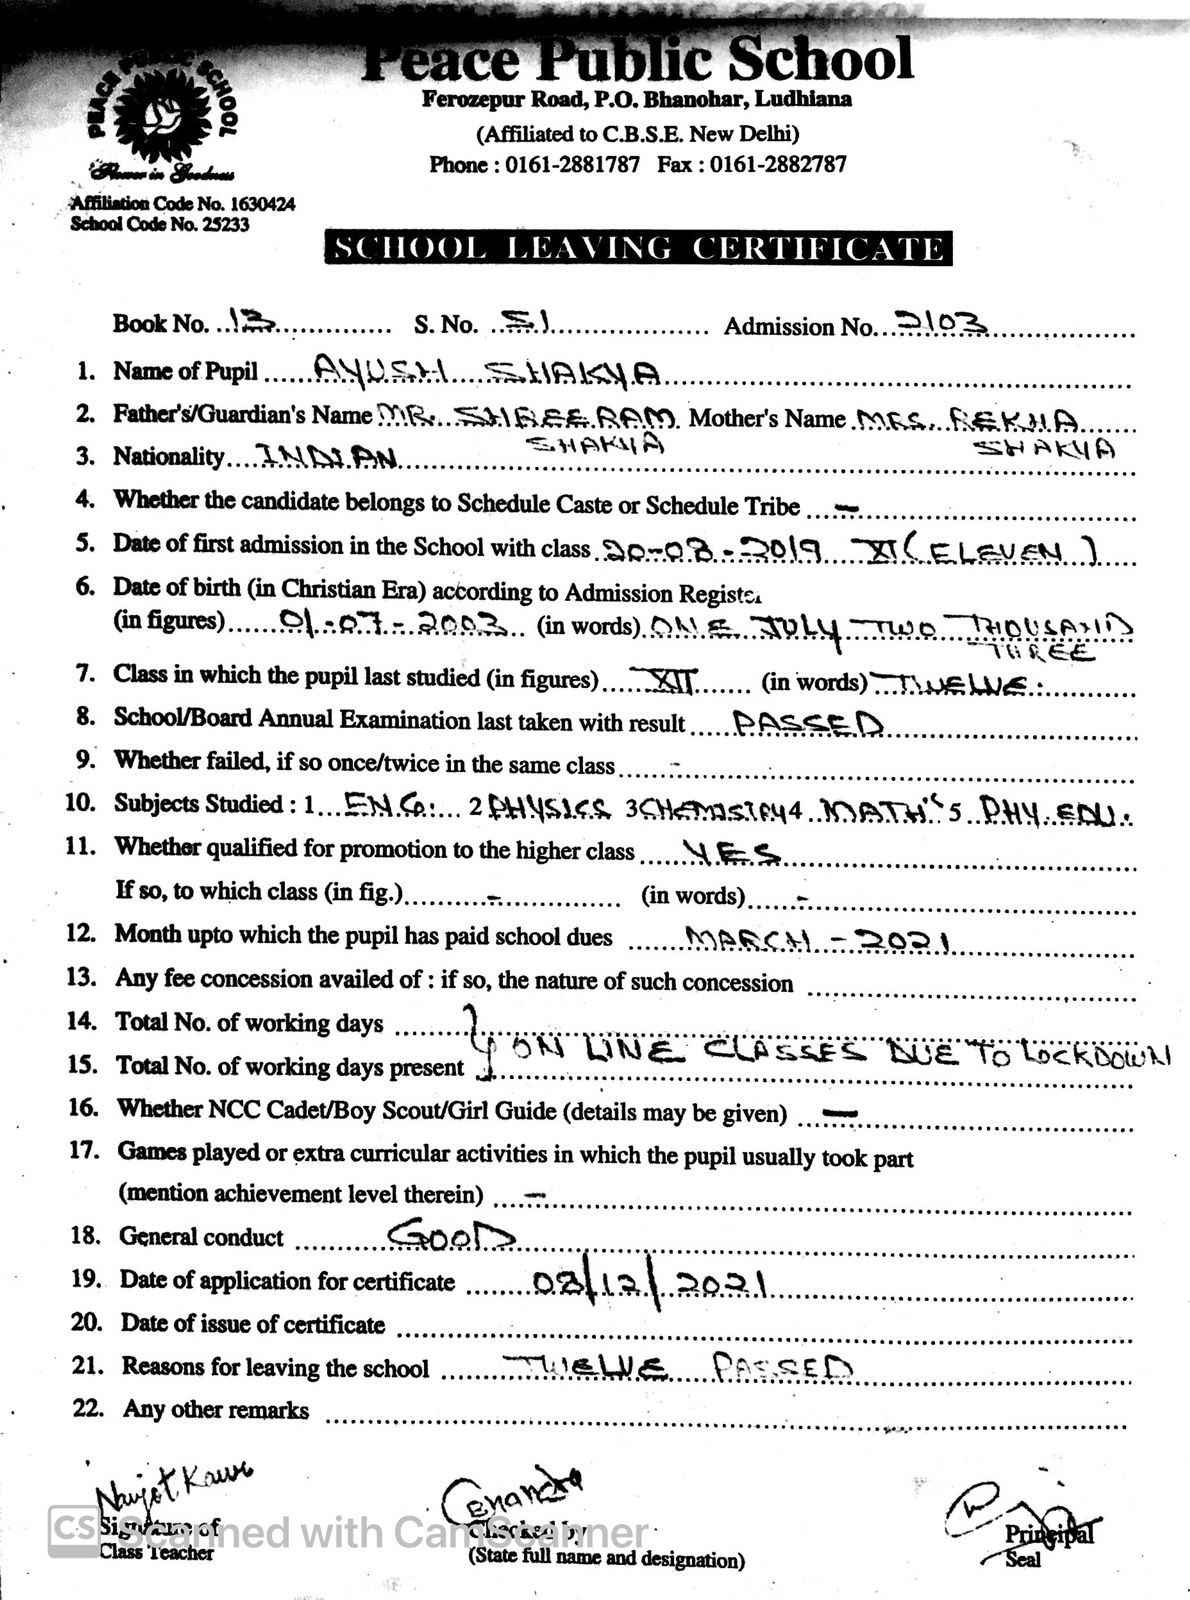 Peace Public School
Ferozepur Road, P.O. Bhanohar, Ludhiana
(Affiliated to C.B.S.E. New Delhi)
Phone : 0161-2881787 Fax : 0161-2882787
PEACE PUBLIC SCHOOL
Flower in Goodness
Affiliation Code No. 1630424
School Code No. 25233
SCHOOL LEAVING CERTIFICATE
Book No. 13 S. No. 51 Admission No. 2103
1. Name of Pupil AYUSH SHAKYA
2. Father's/Guardian's Name MR. SHREERAM Mother's Name MRS. REKHA
SHAKYA SHAKYA
3. Nationality INDIAN
4. Whether the candidate belongs to Schedule Caste or Schedule Tribe –
5. Date of first admission in the School with class 20-08-2019 XI (ELEVEN)
6. Date of birth (in Christian Era) according to Admission Register
(in figures) 01-07-2003 (in words) ONE JULY TWO THOUSAND
THREE
7. Class in which the pupil last studied (in figures) XII (in words) TWELVE.
8. School/Board Annual Examination last taken with result PASSED
9. Whether failed, if so once/twice in the same class -
10. Subjects Studied : 1 ENG. 2 PHYSICS 3 CHEMISTRY 4 MATH'S 5 PHY. EDU.
11. Whether qualified for promotion to the higher class YES
If so, to which class (in fig.) - (in words) -
12. Month upto which the pupil has paid school dues MARCH - 2021
13. Any fee concession availed of : if so, the nature of such concession
14. Total No. of working days
ON LINE CLASSES DUE TO LOCKDOWN
15. Total No. of working days present
16. Whether NCC Cadet/Boy Scout/Girl Guide (details may be given) –
17. Games played or extra curricular activities in which the pupil usually took part
(mention achievement level therein) –
18. General conduct GOOD
19. Date of application for certificate 08/12/2021
20. Date of issue of certificate
21. Reasons for leaving the school TWELVE PASSED
22. Any other remarks
Navjot Kaur
Chandra
Signature of Checked by Principal
Class Teacher (State full name and designation) Seal
CS Scanned with CamScanner